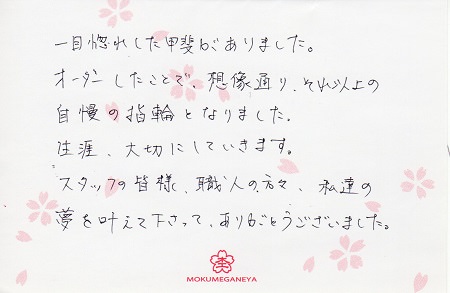 一目惚れした甲斐がありました。
オーダーしたことで、想像通り、それ以上の
自慢の指輪となりました。
生涯、大切にしていきます。
スタッフの皆様、職人の方々、私達の
夢を叶えて下さって、ありがとうございました。
MOKUMEGANEYA